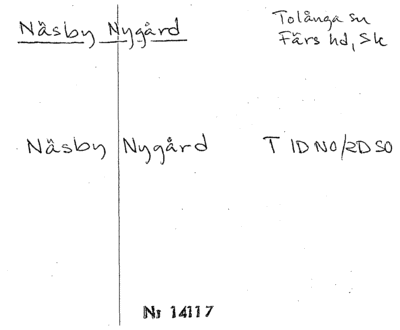 Näsby Nygård
Tolånga sn
Färs hd, Sk
Näsby Nygård T 1D NO/2D SO
Nr 14117